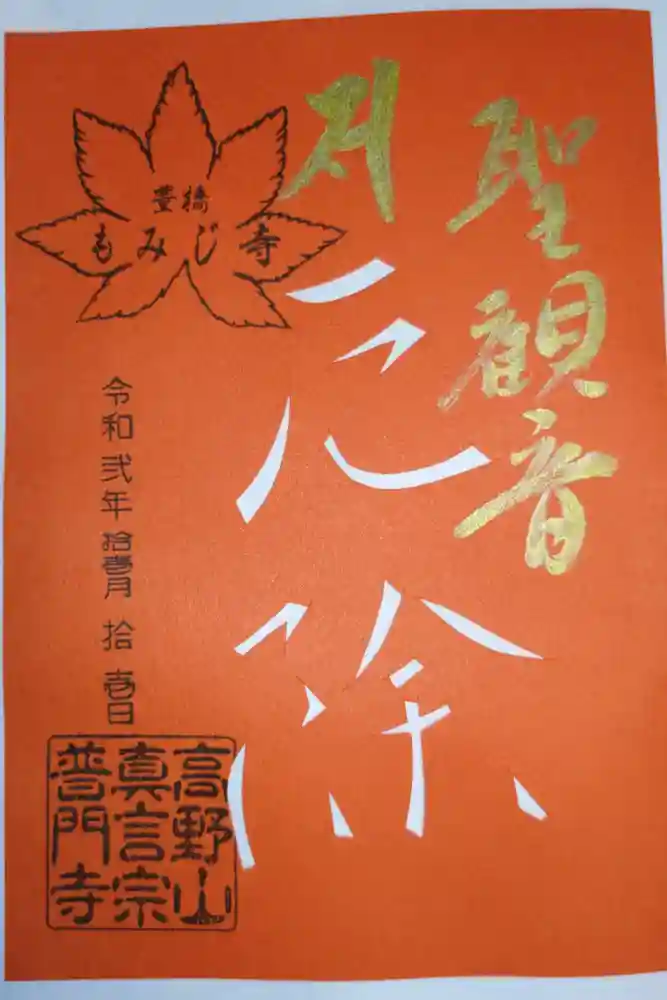 聖観音
厄除
豊橋
もみじ寺
令和弐年拾壱月拾壱日
高野山
真言宗
普門寺